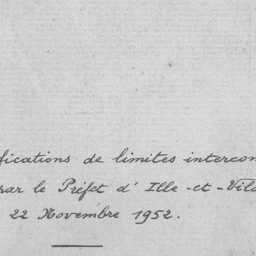 fications de limites interco
par le Préfet d'Ille-et-Vil
22 Novembre 1952.